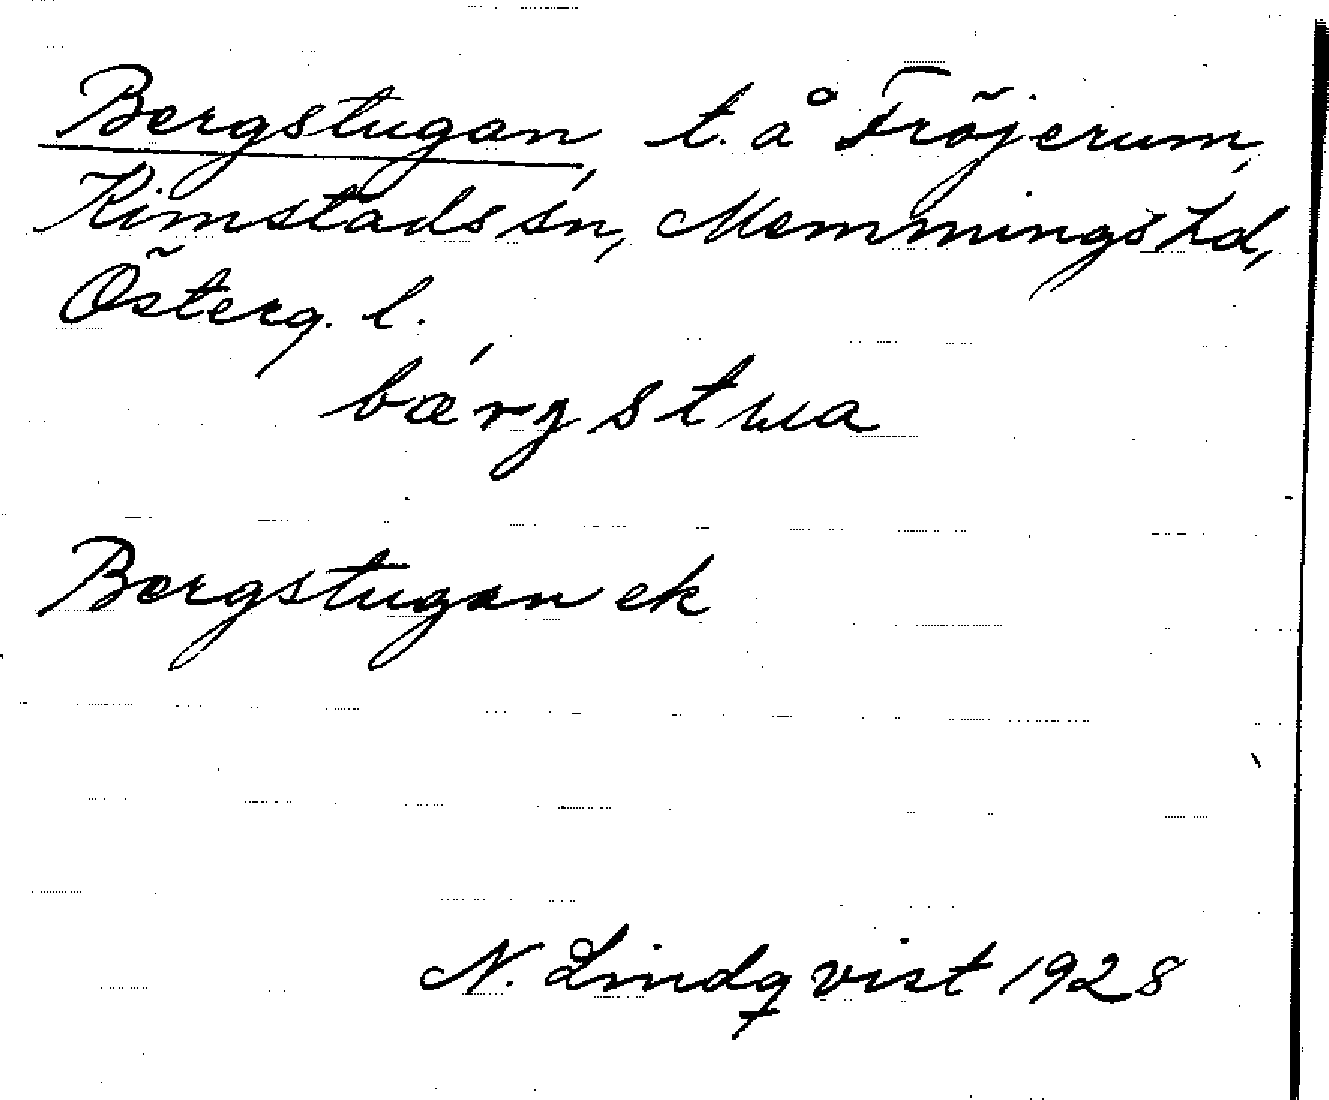 Bergstugan, t. å Fröjerum,
Kimstads sn, Memmings hd,
Österg. l.
bæ´rgstua
Bergstugan ek
N. Lindqvist 1928